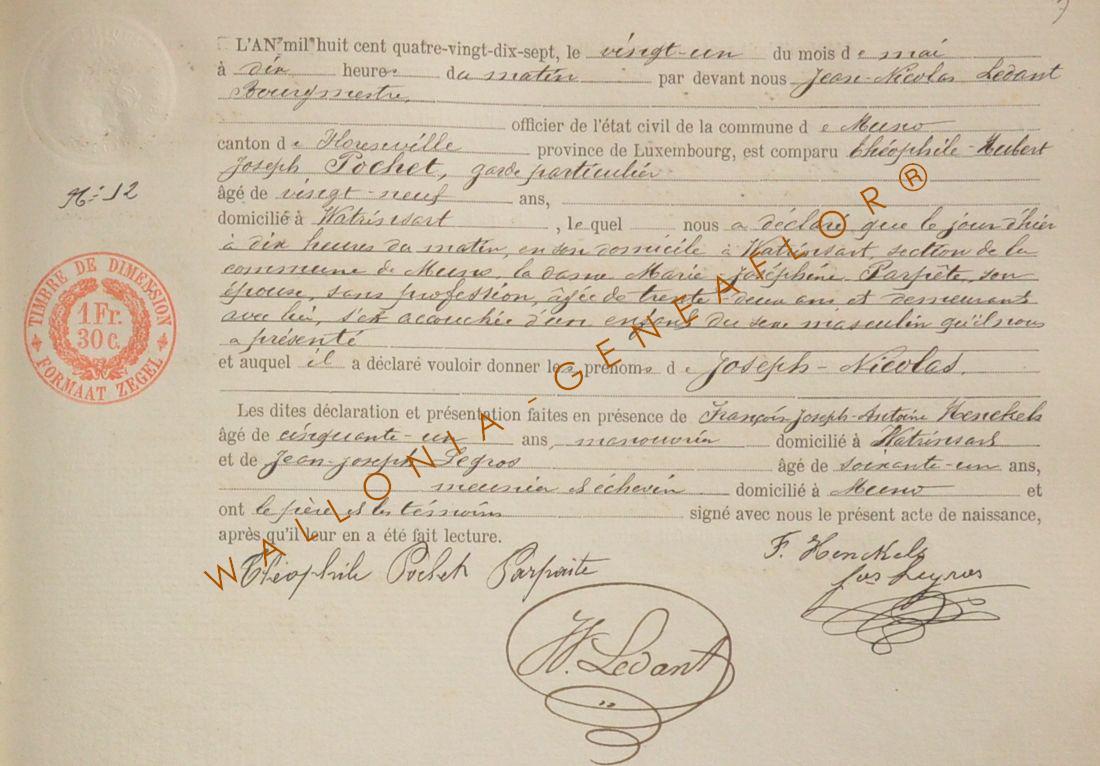 L'AN mil huit cent quatre-vingt-dix-sept, le vingt-un du mois d e mai
à dix heures du matin par devant nous Jean-Nicolas Ledant
Bourgmestre,
officier de l'état civil de la commune d e Muno
canton d e Florenville province de Luxembourg, est comparu théophile-Hubert
Joseph Pochet, garde particulier
N° 12
âgé de vingt-neuf ans,
domicilié à Watrinsart, le quel nous a déclaré que le jour d'hier
à dix heures du matin, en son domicile à Watrinsart, section de la
commune de Muno, la dame Marie-Joséphine Parpète, son
épouse, sans profession, âgée de trente-deux ans et demeurant
avec lui, s'est accouchée d'un enfant du sexe masculin qu'il nous
a présenté
et auquel il a déclaré vouloir donner les prénoms d e Joseph-Nicolas.
TIMBRE DE DIMENSION
1 Fr.
30 C.
FORMAAT ZEGEL
Les dites déclaration et présentation faites en présence de François-Joseph-Antoine Henckels
âgé de cinquante-un ans, manouvrier domicilié à Watrinsart
et de Jean-Joseph Legros âgé de soixante-un ans,
meunier et échevin domicilié à Muno et
ont le père et les témoins signé avec nous le présent acte de naissance,
après qu'il leur en a été fait lecture.
Théophile Pochet Parpaite
F. Henckels
Jos Legros
N. Ledant
WALLONIA-GENEAFLOR®